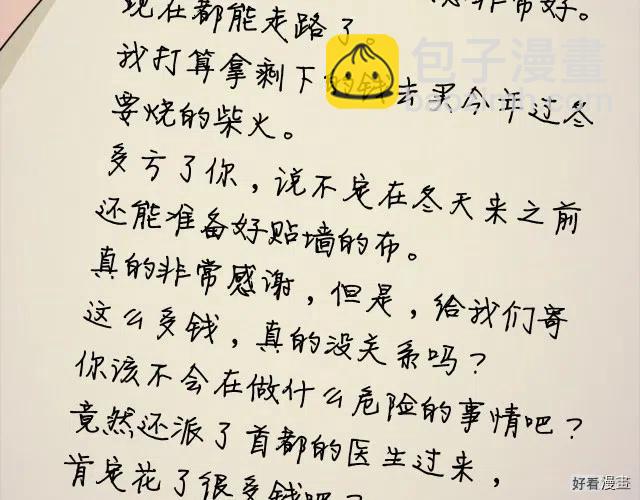 现在都能走路了。 非常好。
我打算拿剩下 钱去买今年过冬
要烧的柴火。
多亏了你，说不定在冬天来之前
还能准备好贴墙的布。
真的非常感谢，但是，给我们寄
这么多钱，真的没关系吗？
你该不会在做什么危险的事情吧？
竟然还派了首都的医生过来，
肯定花了很多钱吧？
包子漫畫
baozimh.com
好看漫畫